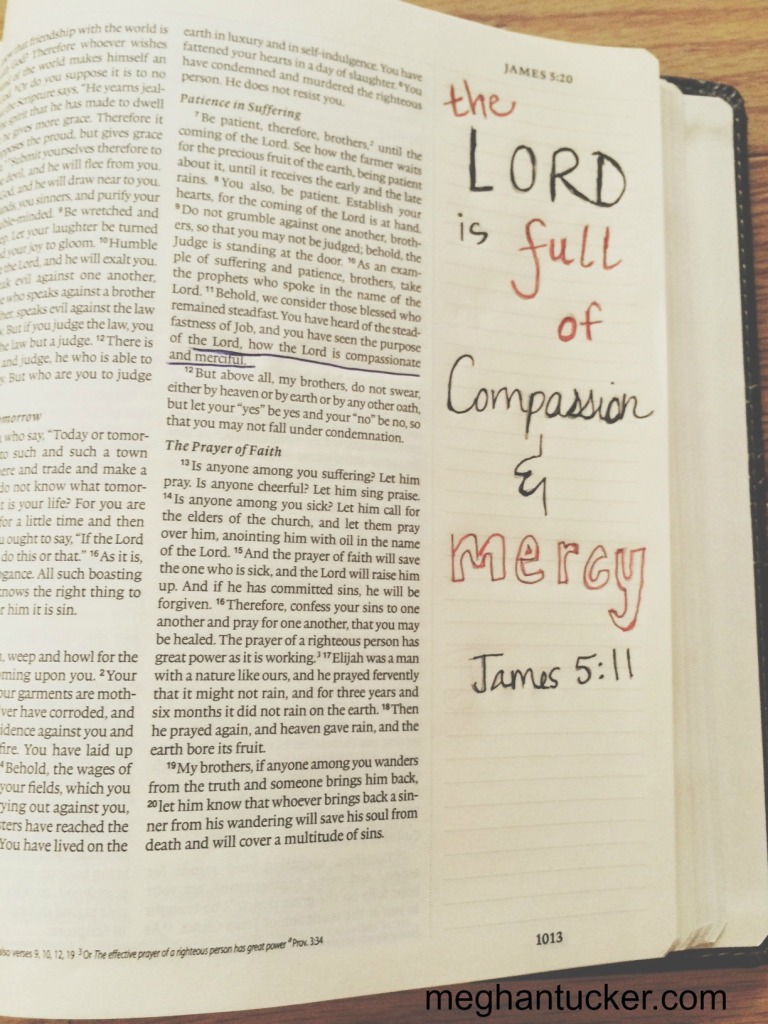 friendship with the world is
God? Therefore whoever wishes
of the world makes himself an
Or do you suppose it is to no
Scripture says, "He yearns jeal-
spirit that he has made to dwell
he gives more grace. Therefore it
opposes the proud, but gives grace
Submit yourselves therefore to
devil, and he will flee from you.
God, and he will draw near to you.
hands, you sinners, and purify your
double-minded. 9Be wretched and
Let your laughter be turned
your joy to gloom. 10Humble
the Lord, and he will exalt you.
speak evil against one another,
who speaks against a brother
speaks evil against the law
But if you judge the law, you
the law but a judge. 12There is
and judge, he who is able to
But who are you to judge
who say, "Today or tomor-
to such and such a town
there and trade and make a
do not know what tomor-
is your life? For you are
for a little time and then
ought to say, "If the Lord
do this or that." 16As it is,
All such boasting
knows the right thing to
for him it is sin.
weep and howl for the
coming upon you. 2Your
your garments are moth-
have corroded, and
evidence against you and
fire. You have laid up
4Behold, the wages of
your fields, which you
crying out against you,
have reached the
You have lived on the
earth in luxury and in self-indulgence. You have
fattened your hearts in a day of slaughter. 6You
have condemned and murdered the righteous
person. He does not resist you.
Patience in Suffering
7Be patient, therefore, brothers,2 until the
coming of the Lord. See how the farmer waits
for the precious fruit of the earth, being patient
about it, until it receives the early and the late
rains. 8You also, be patient. Establish your
hearts, for the coming of the Lord is at hand.
9Do not grumble against one another, broth-
ers, so that you may not be judged; behold, the
Judge is standing at the door. 10As an exam-
ple of suffering and patience, brothers, take
the prophets who spoke in the name of the
Lord. 11Behold, we consider those blessed who
remained steadfast. You have heard of the stead-
fastness of Job, and you have seen the purpose
of the Lord, how the Lord is compassionate
and merciful.
12But above all, my brothers, do not swear,
either by heaven or by earth or by any other oath,
but let your "yes" be yes and your "no" be no, so
that you may not fall under condemnation.
The Prayer of Faith
13Is anyone among you suffering? Let him
pray. Is anyone cheerful? Let him sing praise.
14Is anyone among you sick? Let him call for
the elders of the church, and let them pray
over him, anointing him with oil in the name
of the Lord. 15And the prayer of faith will save
the one who is sick, and the Lord will raise him
up. And if he has committed sins, he will be
forgiven. 16Therefore, confess your sins to one
another and pray for one another, that you may
be healed. The prayer of a righteous person has
great power as it is working.3 17Elijah was a man
with a nature like ours, and he prayed fervently
that it might not rain, and for three years and
six months it did not rain on the earth. 18Then
he prayed again, and heaven gave rain, and the
earth bore its fruit.
19My brothers, if anyone among you wanders
from the truth and someone brings him back,
20let him know that whoever brings back a sin-
ner from his wandering will save his soul from
death and will cover a multitude of sins.
also verses 9, 10, 12, 19 3 Or The effective prayer of a righteous person has great power 4 Prov. 3:34
JAMES 5:20
the
LORD
is full
of
Compassion
&
mercy
James 5:11
1013
meghantucker.com